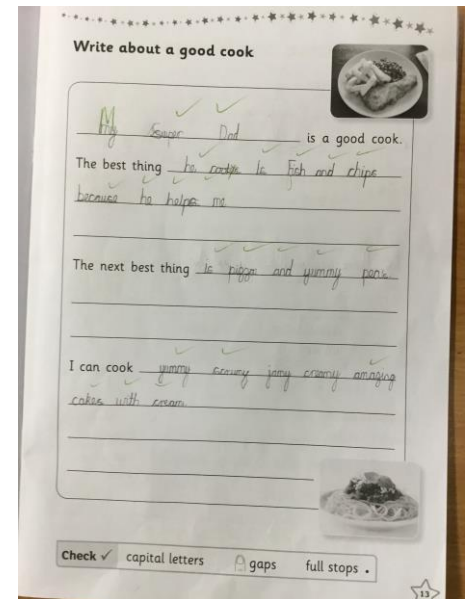 Write about a good cook
My Super Dad is a good cook.
The best thing he cooks Is Fish and chips
because he helps me
The next best thing is pizza and yummy
I can cook yummy jamy creamy amazing
cakes with cream
Check ✓ capital letters gaps full stops .
13